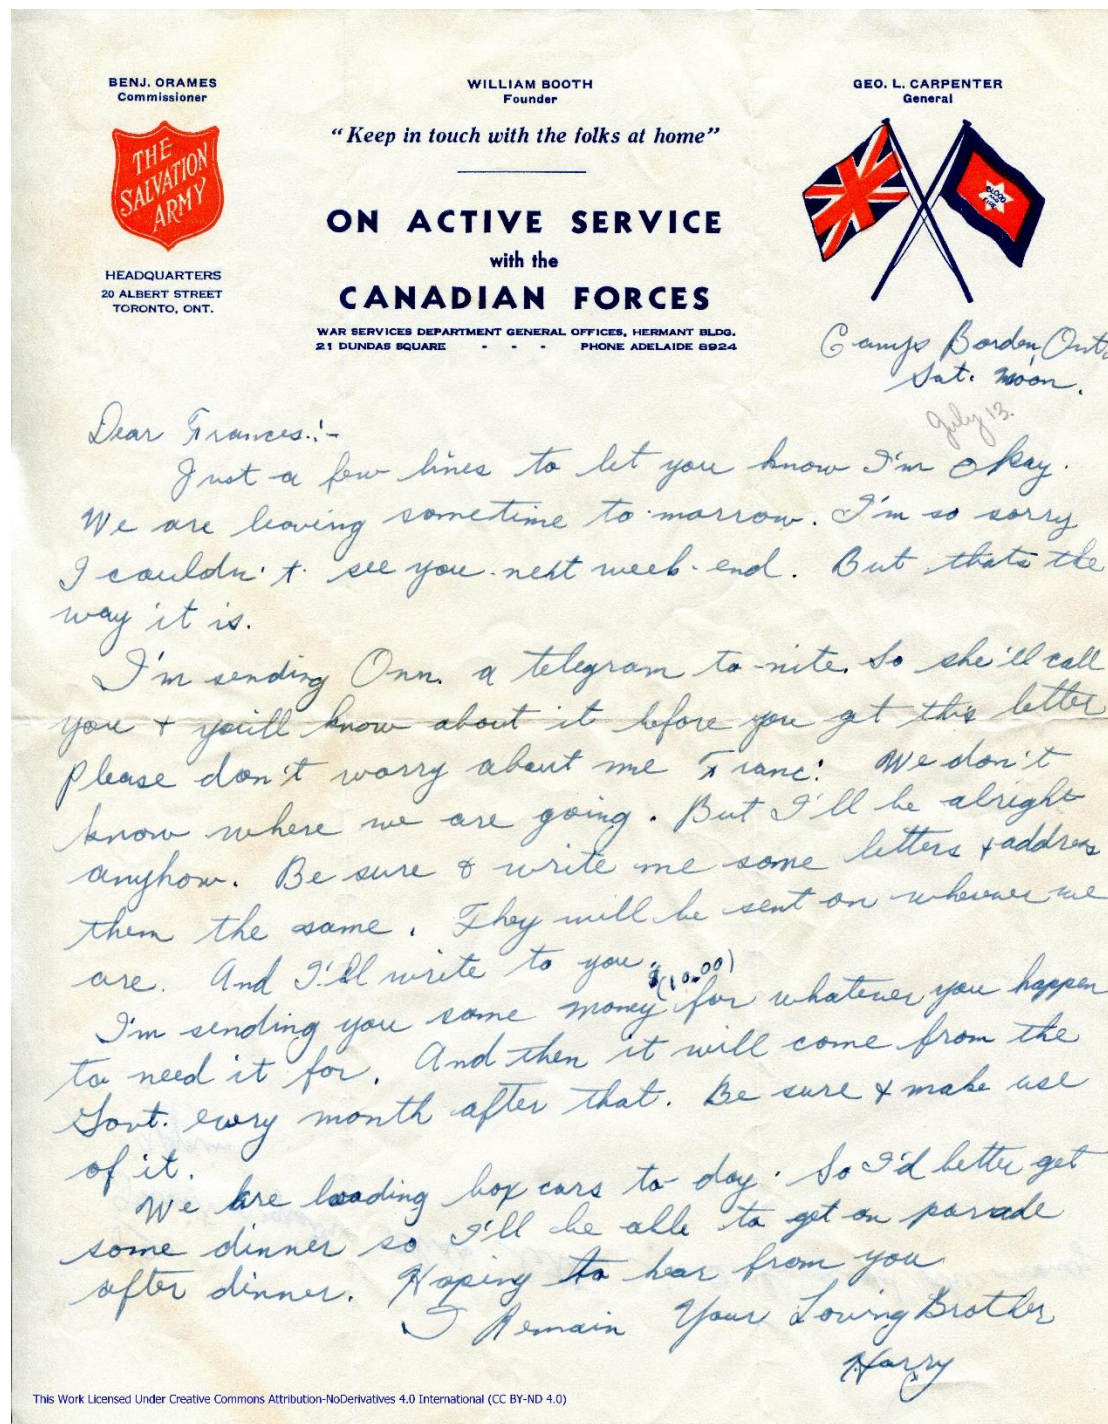 BENJ. ORAMES
Commissioner
THE
SALVATION
ARMY
HEADQUARTERS
20 ALBERT STREET
TORONTO, ONT.
WILLIAM BOOTH
Founder
"Keep in touch with the folks at home"
ON ACTIVE SERVICE
with the
CANADIAN FORCES
WAR SERVICES DEPARTMENT GENERAL OFFICES, HERMANT BLDG.
21 DUNDAS SQUARE - - - PHONE ADELAIDE 8924
GEO. L. CARPENTER
General
BLOOD
AND
FIRE
Camp Borden, Ont.
Sat. noon.
July 13.
Dear Frances:-
Just a few lines to let you know I'm okay.
We are leaving sometime to-morrow. I'm so sorry
I couldn't see you next week-end. But thats the
way it is.
I'm sending Onn. a telegram to-nite. So she'll call
you & you'll know about it before you get this letter
Please don't worry about me Franc. We don't
know where we are going. But I'll be alright
anyhow. Be sure & write me some letters & address
them the same. They will be sent on wherever we
are. And I'll write to you.
$(10.00)
I'm sending you some money for whatever you happen
to need it for. And then it will come from the
Govt. every month after that. Be sure & make use
of it.
We are loading box cars to day. So I'd better get
some dinner so I'll be able to get on parade
after dinner. Hoping to hear from you
I Remain Your Loving Brother
Harry
This Work Licensed Under Creative Commons Attribution-NoDerivatives 4.0 International (CC BY-ND 4.0)